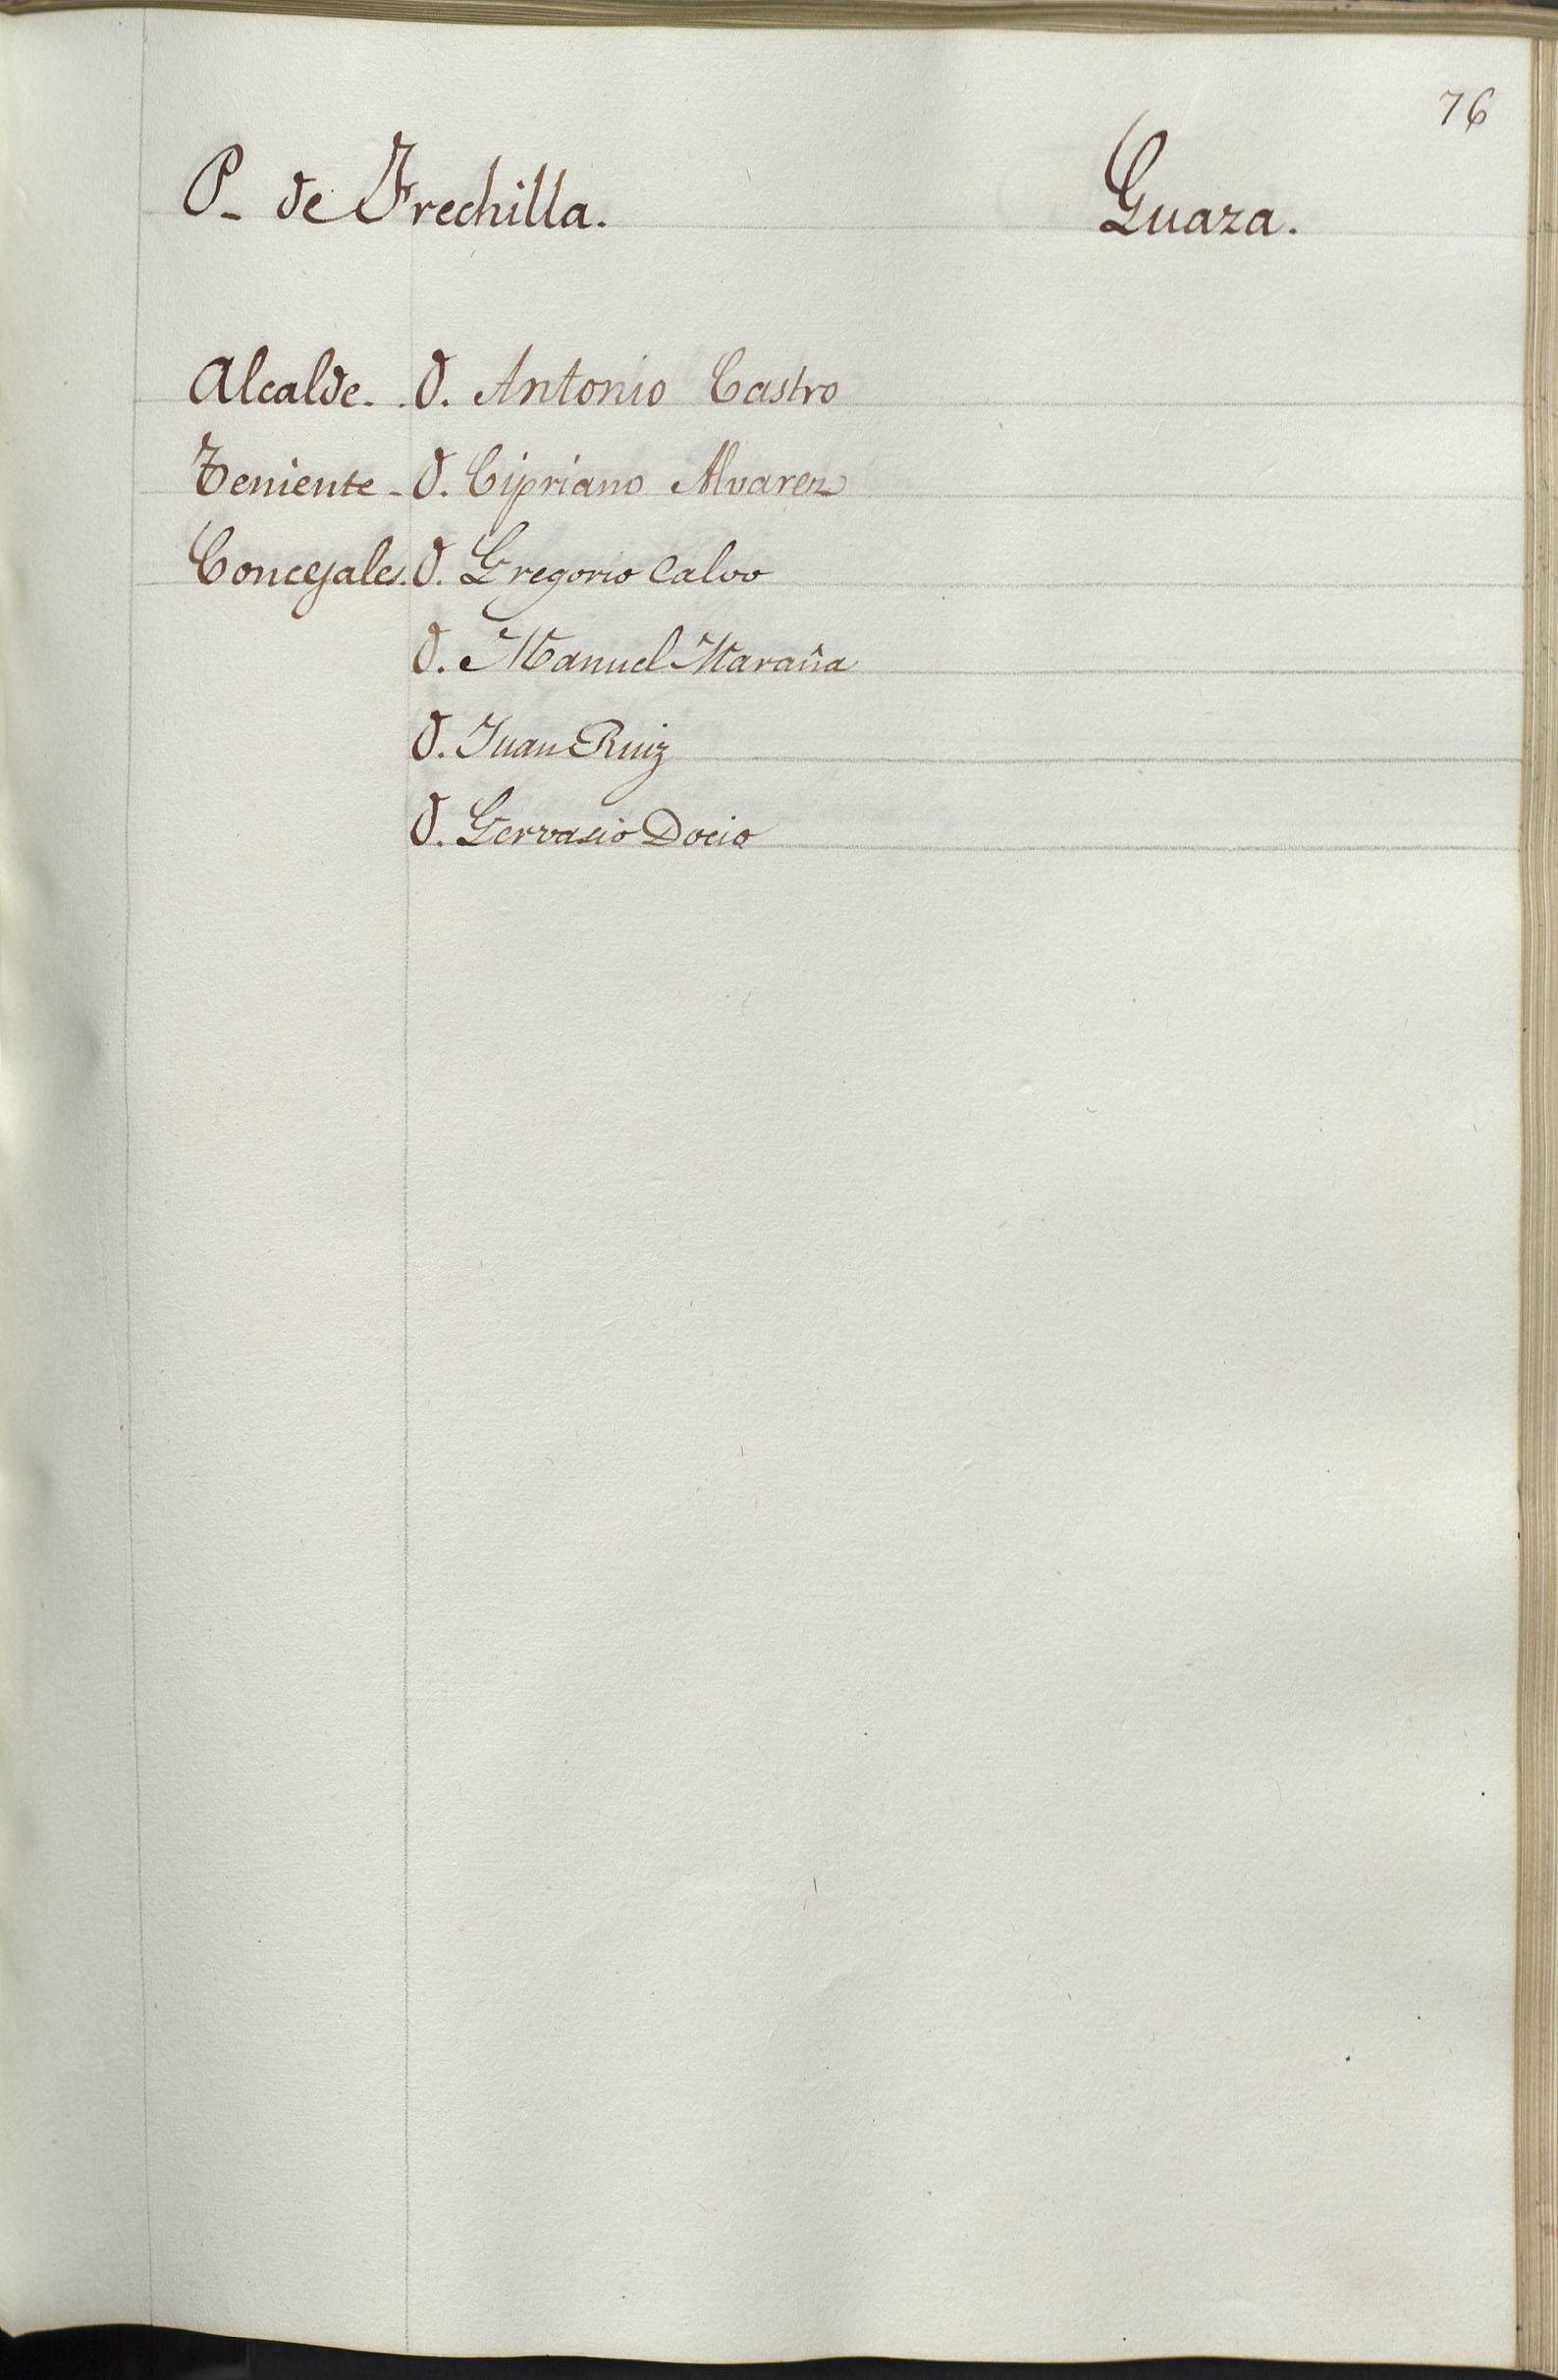 76
P- de Frechilla. Guaza.
Alcalde. . D. Antonio Castro
Teniente - D. Cipriano Alvarez
Concejales. D. Gregorio Calvo
D. Manuel Maraña
D. Juan Ruiz
D. Gervasio Docio